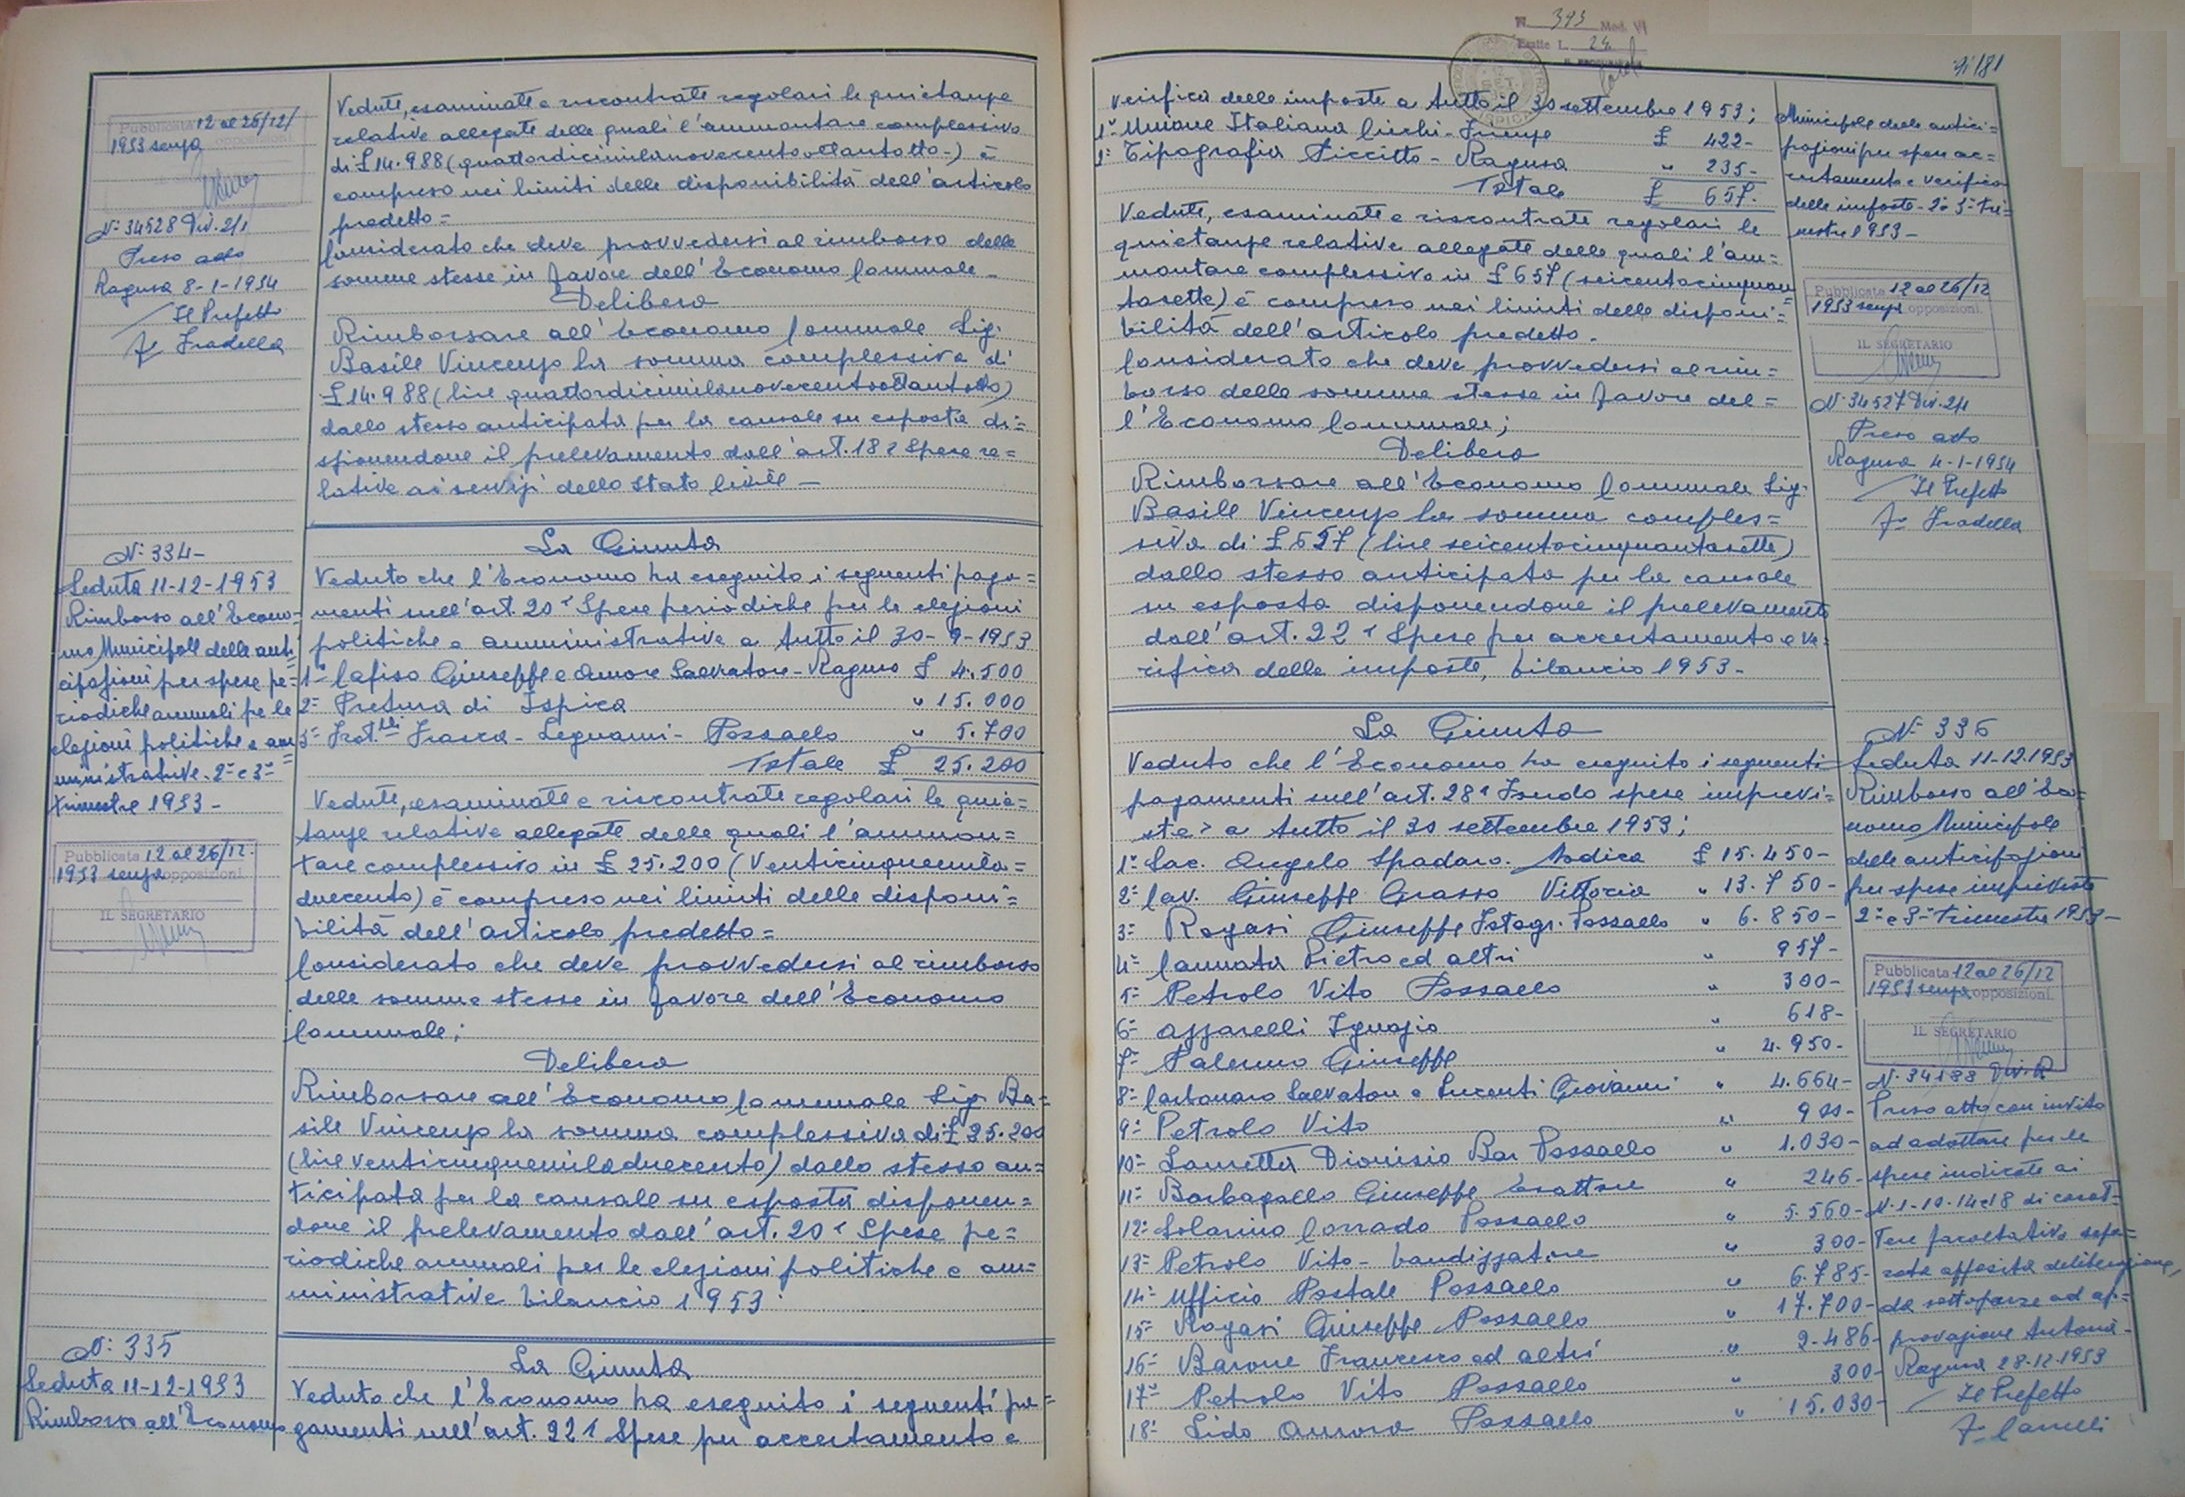 Pubblicata 12 al 26/12/
1953 senza opposizioni.
N° 34528 Div. 2/1
Preso atto
Ragusa 8-1-1954
Il Prefetto
Fradella
Vedute, esaminate e riscontrate regolari le quietanze
relative allegate delle quali l'ammontare complessivo
di £ 14.988 (quattordicimilanovecentoottantotto-) è
compreso nei limiti delle disponibilità dell'articolo
predetto =
Considerato che deve provvedersi al rimborso delle
somme stesse in favore dell'Economo Comunale -
Delibera
Rimborsare all'Economo Comunale Sig.
Basile Vincenzo la somma complessiva di
£ 14.988 (lire quattordicimilanovecentoottantotto)
dallo stesso anticipata per la causale su esposta di=
sponendone il prelevamento dall'art. 18 Spese re=
lative ai servizi dello Stato Civile -
N° 334-
Seduta 11-12-1953
Rimborso all'Econo-
mo Municipale delle anti=
cipazioni per spese pe=
riodiche annuali pe le
elezioni politiche e am
ministrative - 2° e 3°
trimestre 1953-
Pubblicata 12 al 26/12.
1953 senza opposizioni.
IL SEGRETARIO
La Giunta
Veduto che l'Economo ha eseguito i seguenti paga=
menti sull'art. 20 Spese periodiche per le elezioni
politiche e amministrative a tutto il 30-9-1953
1° Cafiso Giuseppe e Amore Salvatore - Ragusa £ 4.500
2° Pretura di Ispica " 15.000
3° Frat.lli Frasca - Legnami - Pozzallo " 5.700
Totale £ 25.200
Vedute, esaminate e riscontrate regolari le quie=
tanze relative allegate delle quali l'ammon=
tare complessivo in £ 25.200 (Venticinquemila=
duecento) è compreso nei limiti delle disponi=
bilità dell'articolo predetto =
Considerato che deve provvedersi al rimborso
delle somme stesse in favore dell'Economo
Comunale;
Delibera
Rimborsare all'Economo Comunale Sig. Ba=
sile Vincenzo la somma complessiva di £ 25.200
(lire venticinquemiladuecento) dallo stesso an=
ticipata per la causale su esposta disponen=
done il prelevamento dall'art. 20 Spese pe=
riodiche annuali per le elezioni politiche e am=
ministrative bilancio 1953
N° 335
Seduta 11-12-1953
Rimborso all'Economo
La Giunta
Veduto che l'Economo ha eseguito i seguenti pa=
gamenti sull'art. 22 Spese per accertamento e
N. 393 Mod. VI
Esatte L. 24
181
verifica delle imposte a tutto il 30 settembre 1953;
1° Unione Italiana Ciechi - Firenze £ 422-
2° Tipografia Piccitto - Ragusa " 235-
Totale £ 657.
Vedute, esaminate e riscontrate regolari le
quietanze relative allegate delle quali l'am=
montare complessivo in £ 657 (seicentocinquan
tasette) è compreso nei limiti delle disponi=
bilità dell'articolo predetto.
Considerato che deve provvedersi al rim=
borso delle somme stesse in favore del=
l'Economo Comunale;
Delibera
Rimborsare all'Economo Comunale Sig.
Basile Vincenzo la somma comples=
siva di £ 657 (lire seicentocinquantasette)
dallo stesso anticipata per la causale
su esposta disponendone il prelevamento
dall'art. 22 Spese per accertamento e ve=
rifica delle imposte, bilancio 1953-
Municipale delle antici=
pazioni per spese ac=
certamento e verifica
delle imposte - 2° 3° tri=
mestre 1953-
Pubblicata 12 al 26/12
1953 senza opposizioni.
IL SEGRETARIO
N° 34527 Div. 2/1
Preso atto
Ragusa 4-1-1954
Il Prefetto
Fradella
La Giunta
Veduto che l'Economo ha eseguito i seguenti
pagamenti sull'art. 28 Fondo spese imprevi=
ste a tutto il 30 settembre 1953;
1° Sac. Angelo Spadaro. Modica £ 15.450-
2° Cav. Giuseppe Grasso Vittoria " 13.750-
3° Rogasi Giuseppe Fotogr. Pozzallo " 6.850-
4° Cannata Pietro ed altri " 957-
5° Petrolo Vito Pozzallo " 300-
6° Azzarelli Ignazio " 618-
7° Palermo Giuseppe " 4.950-
8° Carbonaro Salvatore e Lucenti Giovanni " 4.664-
9° Petrolo Vito " 900-
10° Lauretta Dionisio Bar Pozzallo " 1.030-
11° Barbagallo Giuseppe Esattore " 246-
12° Solarino Corrado Pozzallo " 5.560-
13° Petrolo Vito - banditore " 300-
14° Ufficio Postale Pozzallo " 6.785-
15° Rogasi Giuseppe Pozzallo " 17.700-
16° Barone Francesco ed altri " 2.486-
17° Petrolo Vito Pozzallo " 300-
18° Lido Aurora Pozzallo " 15.030-
N° 336
Seduta 11-12-1953
Rimborso all'Eco=
nomo Municipale
delle anticipazioni
per spese impreviste
2° e 3° trimestre 1953-
Pubblicata 12 al 26/12
1953 senza opposizioni.
IL SEGRETARIO
N. 34188 Div. R
Preso atto con invito
ad adottare per le
spese indicate ai
N. 1-10-14 e 18 di carat=
tere facoltativo sepa=
rata apposita deliberazione,
da sottoporre ad ap=
provazione tutoria -
Ragusa 28-12-1953
Il Prefetto